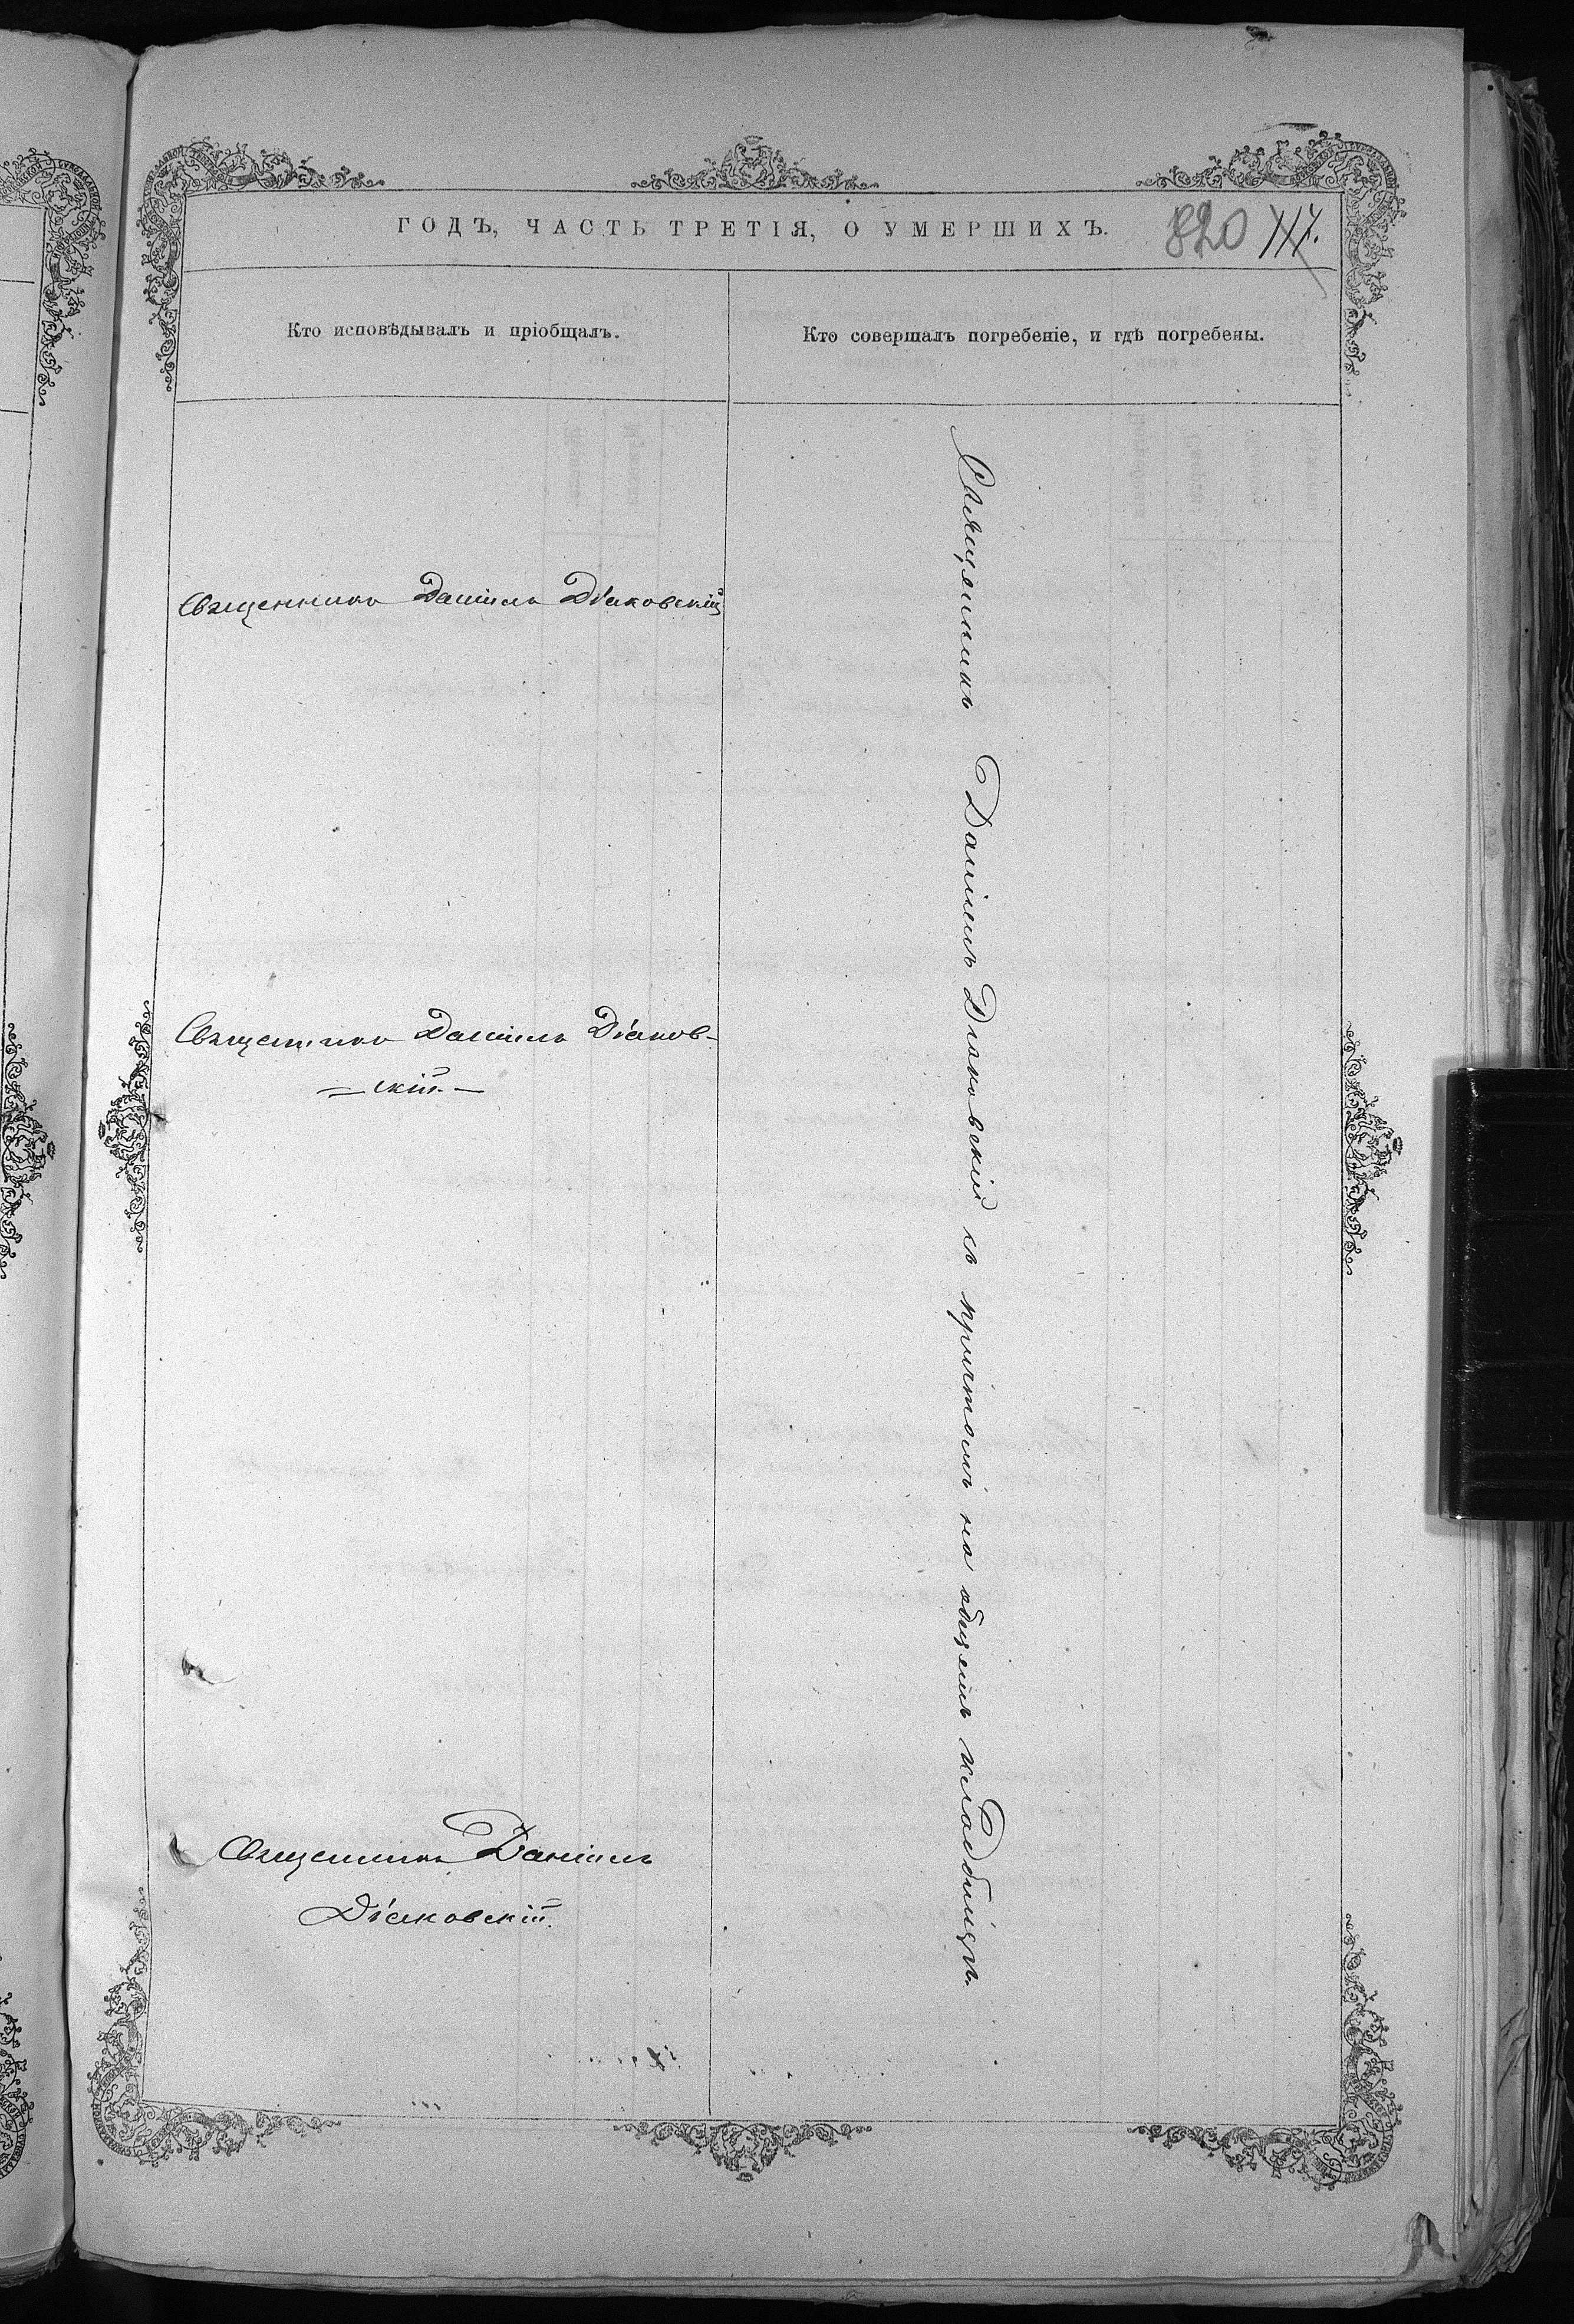 ГОДЪ, ЧАСТЬ ТРЕТІЯ, О УМЕРШИХЪ.
820
Кто исповѣдывалъ и пріобщалъ.
Кто совершалъ погребеніе, и гдѣ погребены.
Священникъ Даніилъ Діаковскій
Священникъ Даніилъ Діаков-
скій.
Священникъ Даніилъ
Діаковскій.
Священникъ Даніилъ Діаковскій съ причтомъ на общемъ кладбищѣ.